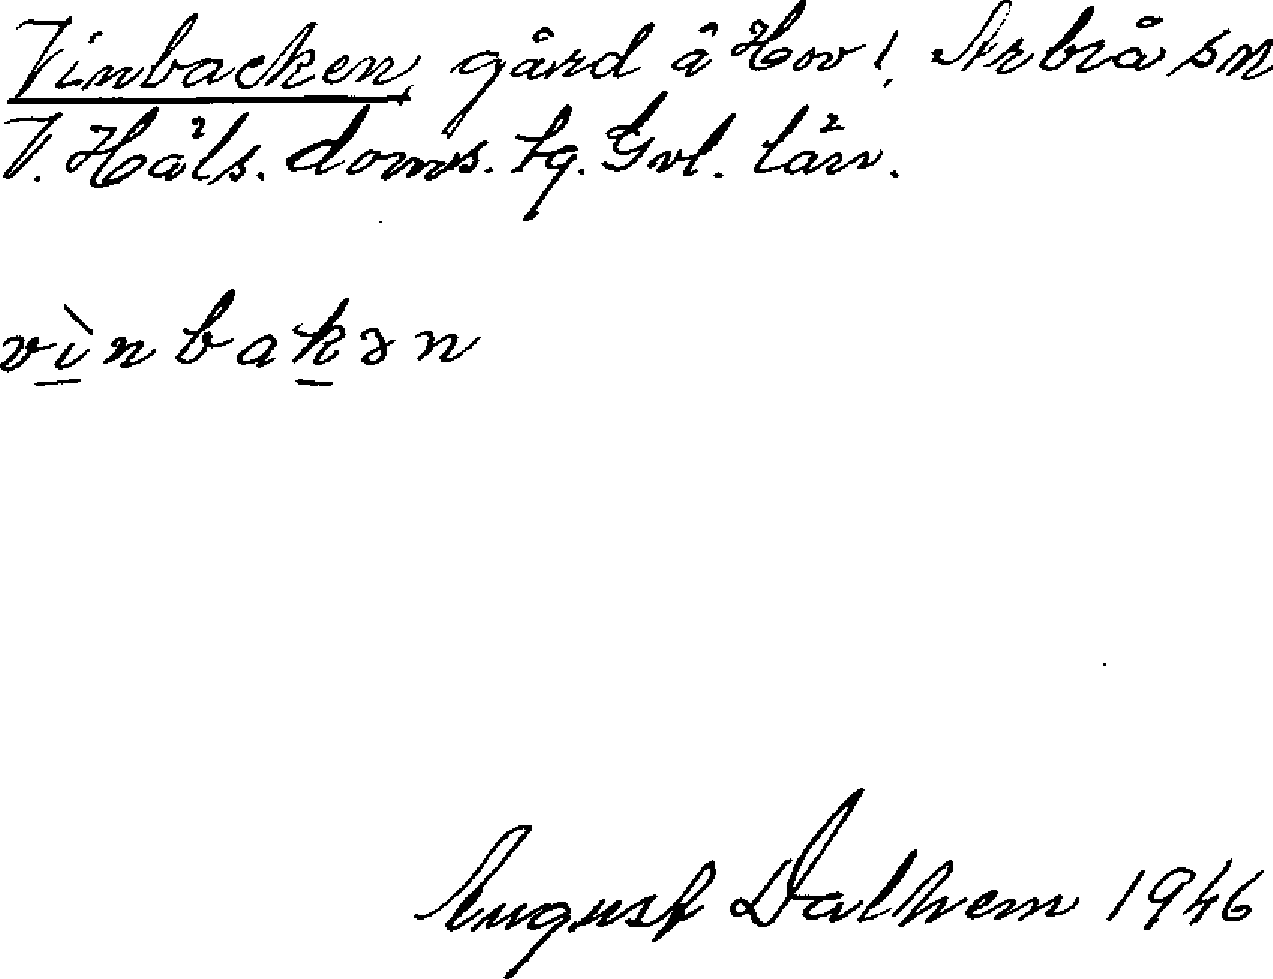 Vinbacken, gård å Hov!, Arbrå sn
V. Häls. doms. tg. Gvl. län.
vìnbakən
August Dalhem 1946